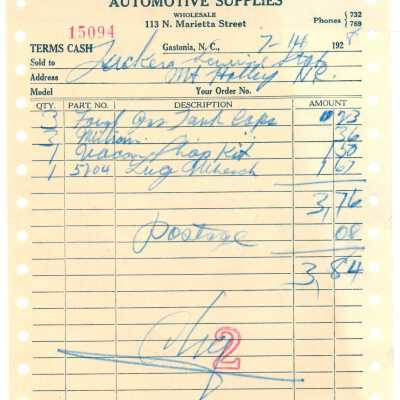 AUTOMOTIVE SUPPLIES
WHOLESALE
113 N. Marietta Street
Phones { 732
769
15094
TERMS CASH Gastonia, N. C., 7-14 1928
Sold to Tuckers Service Sta
Address Mt Holley N.C.
Model Your Order No.
QTY. PART. NO. DESCRIPTION AMOUNT
3 Tank Caps 23
3 36
1 Shop Kit 1 50
1 5704 Lug Wrench 1 67
3,76
Postage 08
3,84
2